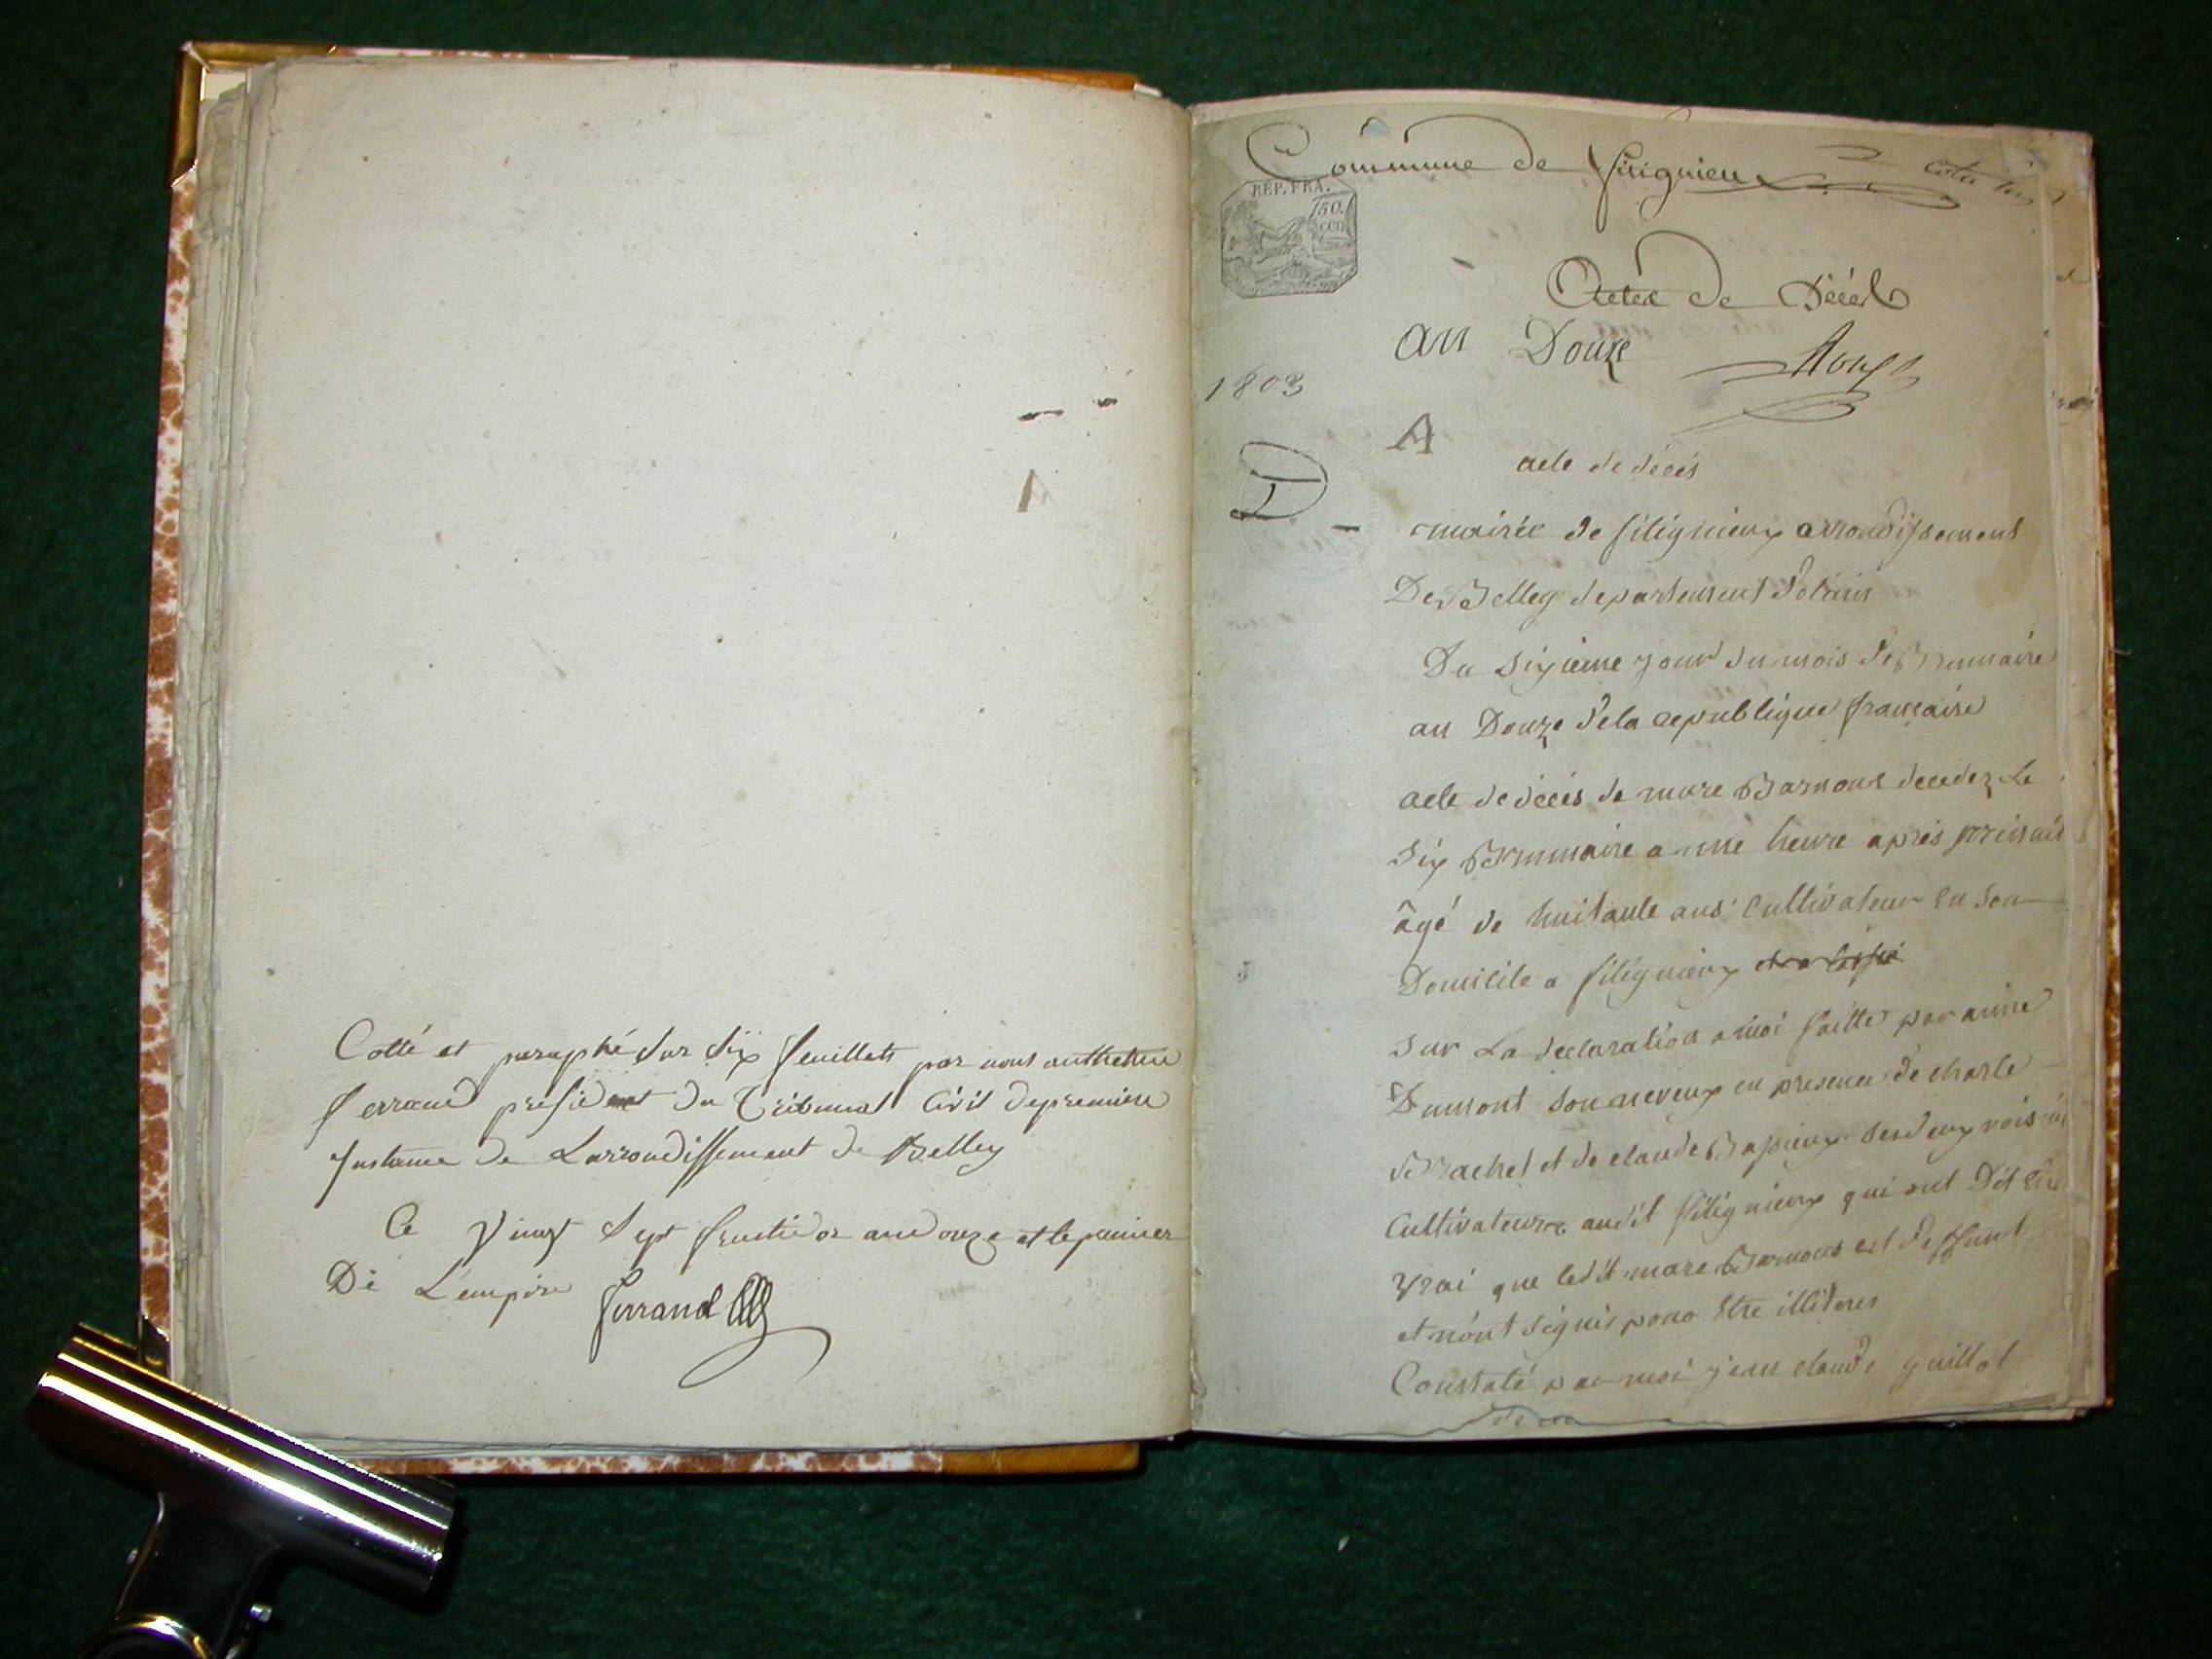 Cotté et paraphé sur six feuillets par nous anthelme
ferrand president du Tribunal Civil de premiere
Instance de Larrondissement de Belley
Ce Vingt Sept fructidor an douze et le premier
De L'empire ferrand
Commune de
REP. FRA.
50.
CEN
Actes de Décès
an Douze
1803
A
acte de décès
D
mairie de filignieux arrondissement
De Belley departement de lain
Du sixieme jour du mois de Brumaire
an Douze de la republique francaise
acte de décès de marc Barnous decedez Le
six Brumaire a une heure après minuit
âgé de huitante ans cultivateur en son
Domicile a filignieux
sur La declaration a moi faitte par anne
Dumont son neveux en presence de charle
Brachet et de claude ses deux voisins
Cultivateurs audit filignieux qui ont Dit Etre
vrai que ledit marc Barnous est deffunt
et n'ont signés pour Etre illiteres
Constaté par moi jean claude guillot